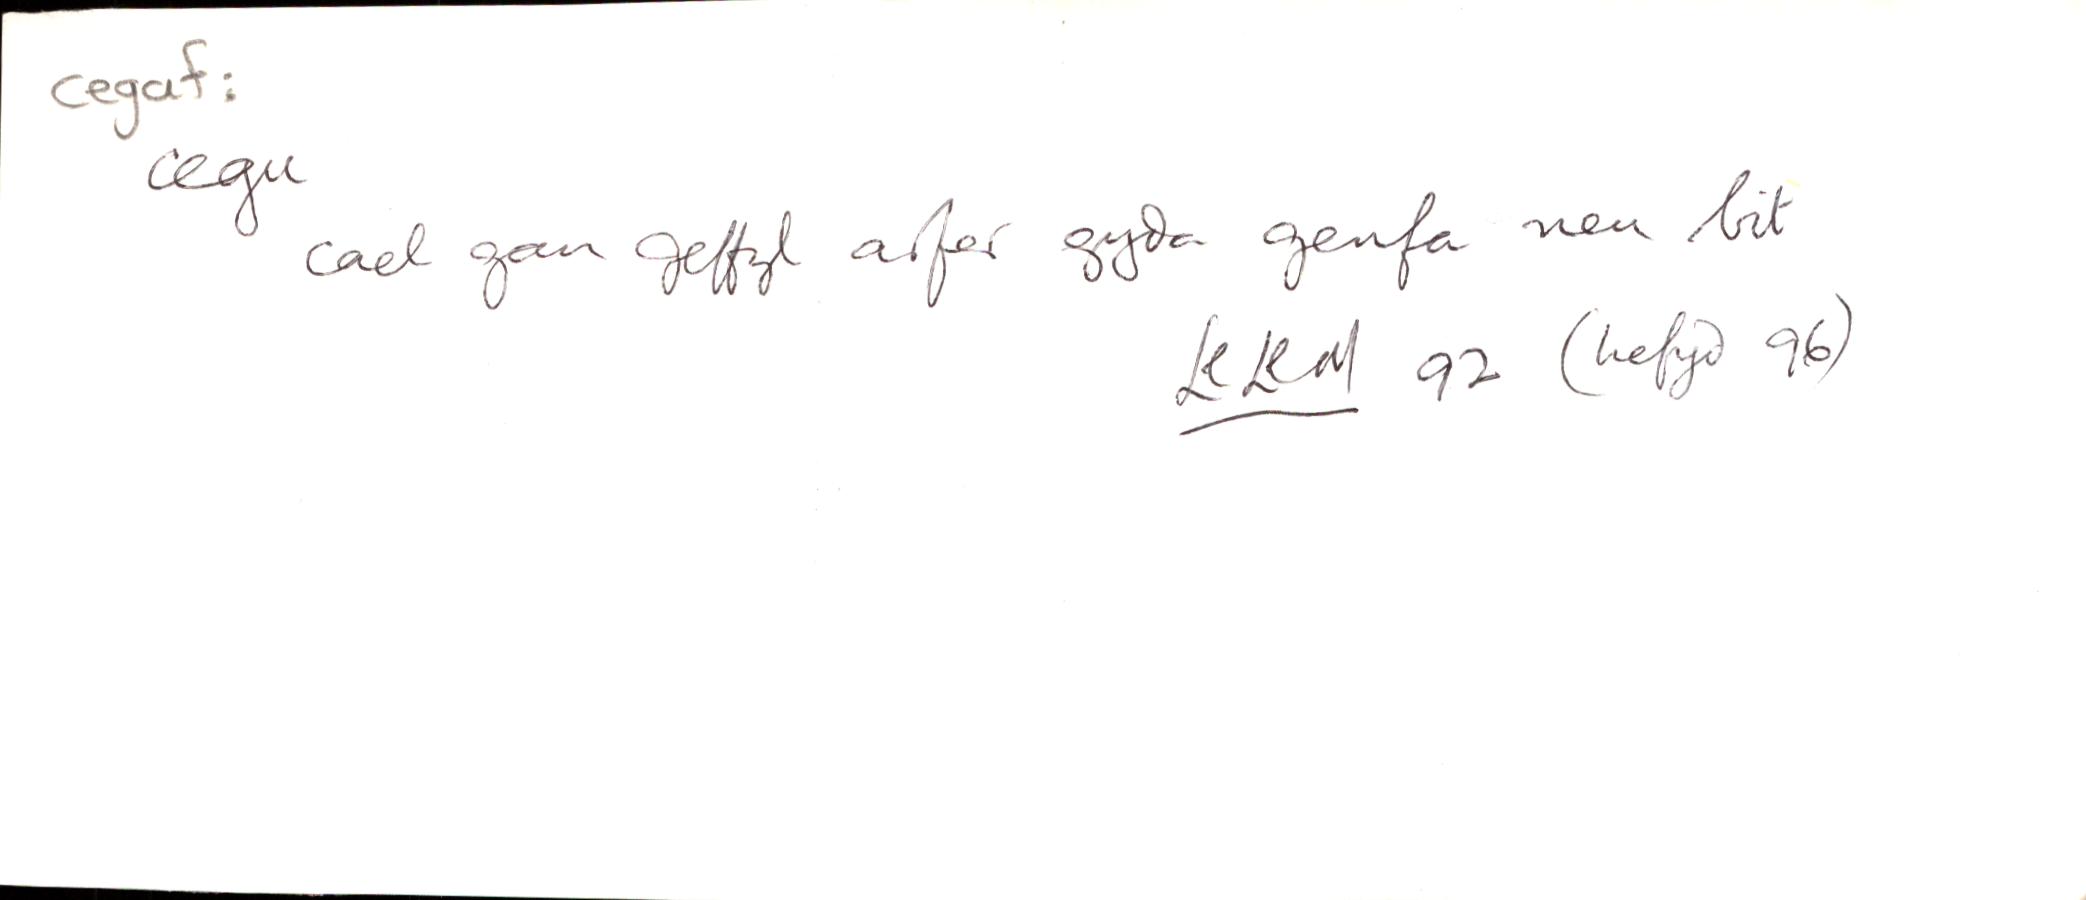 cegaf:
cegu
cael gan geffyl arfer gyda genfa neu bit
LlLlM 92 (hefyd 96)